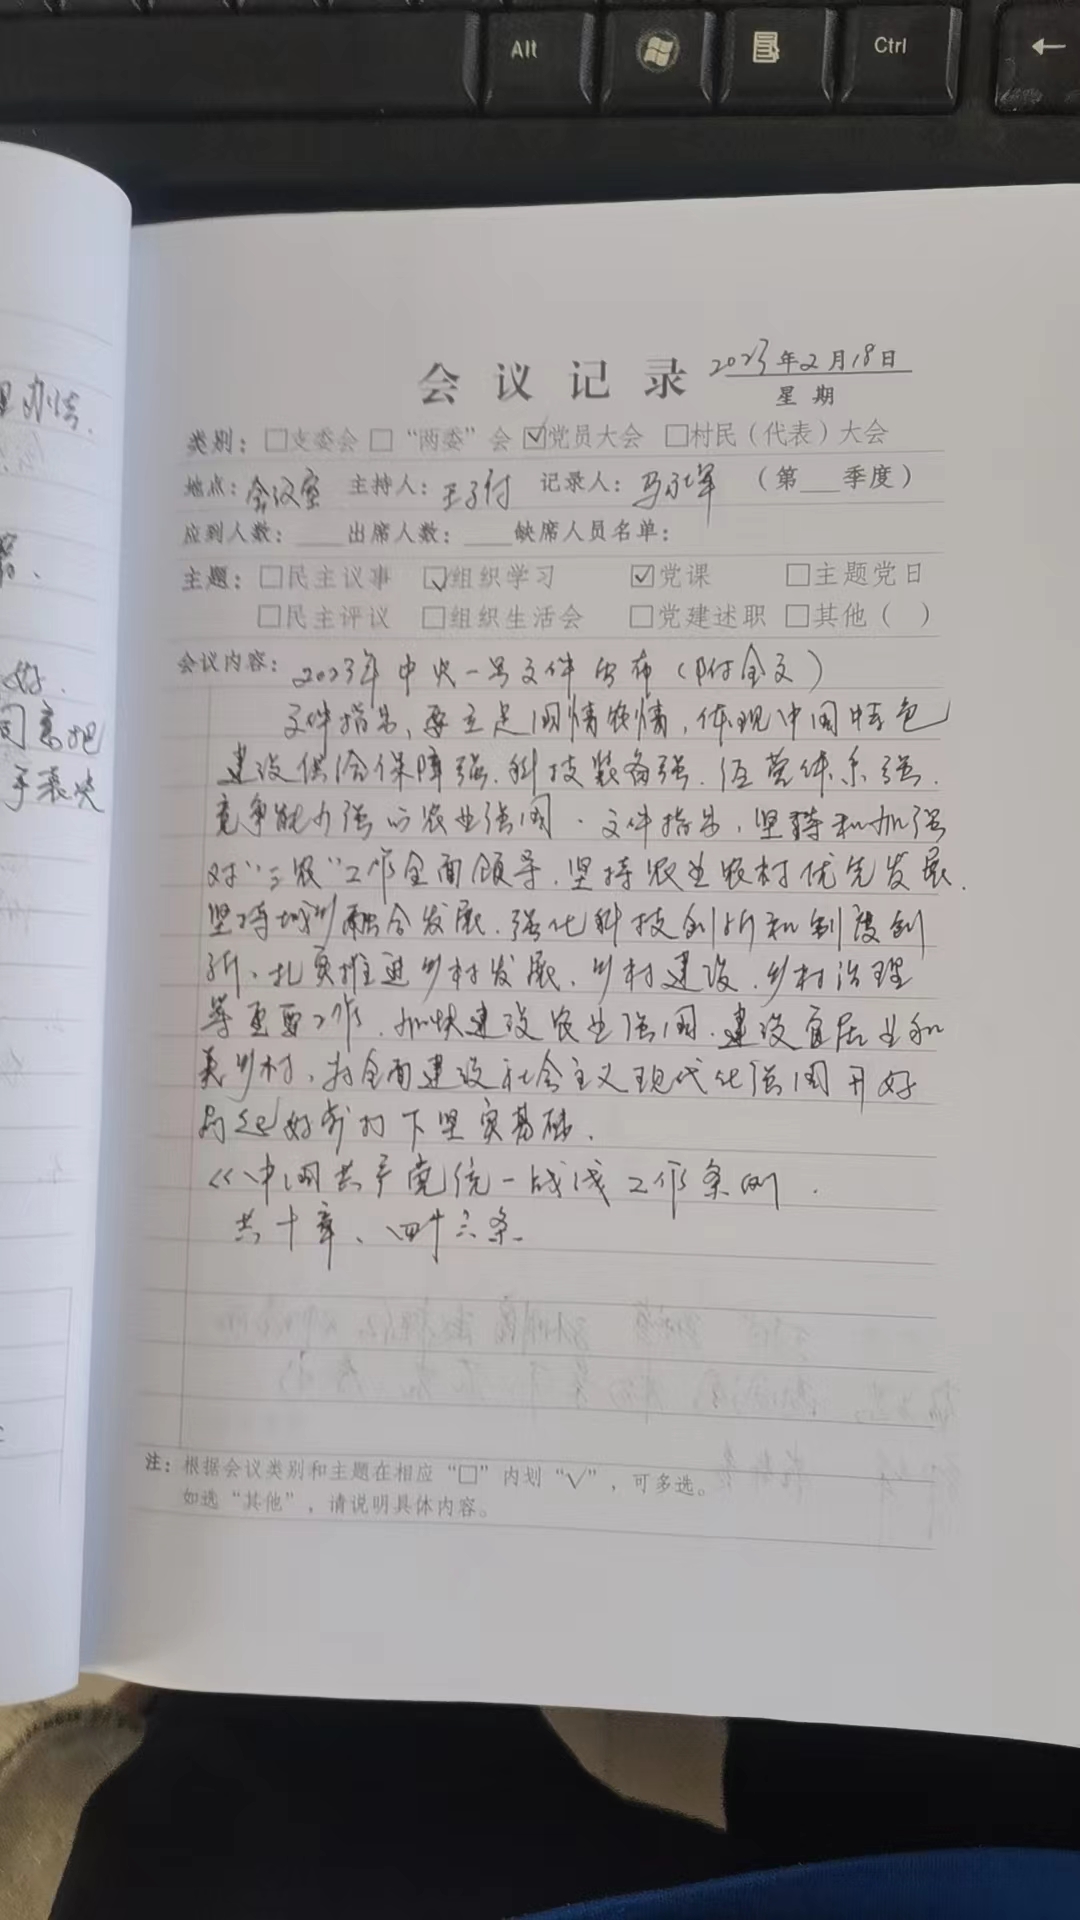 Alt
Ctrl
←
办法.
好.
同意把
手表决
会议记录 2023年2月18日
星期
类别：□支委会 □“两委”会 ☑党员大会 □村民（代表）大会
地点：会议室 主持人：王子付 记录人：马 军 （第___季度）
应到人数：____出席人数：____缺席人员名单：
主题：□民主议事 ☑组织学习 ☑党课 □主题党日
□民主评议 □组织生活会 □党建述职 □其他（ ）
会议内容：2023年中央一号文件发布（附全文）
文件指出,要立足国情农情,体现中国特色
建设供给保障强.科技装备强.经营体系强.
竞争能力强的农业强国.文件指出,坚持和加强
对“三农”工作全面领导.坚持农业农村优先发展.
坚持城乡融合发展.强化科技创新和制度创
新、扎实推进乡村发展、乡村建设.乡村治理
等重要工作.加快建设农业强国.建设宜居业和
美乡村、为全面建设社会主义现代化强国开好
局起好步打下坚实基础.
《中国共产党统一战线工作条例.
共十章、四十六条
注：根据会议类别和主题在相应“□”内划“√”，可多选。
如选“其他”，请说明具体内容。